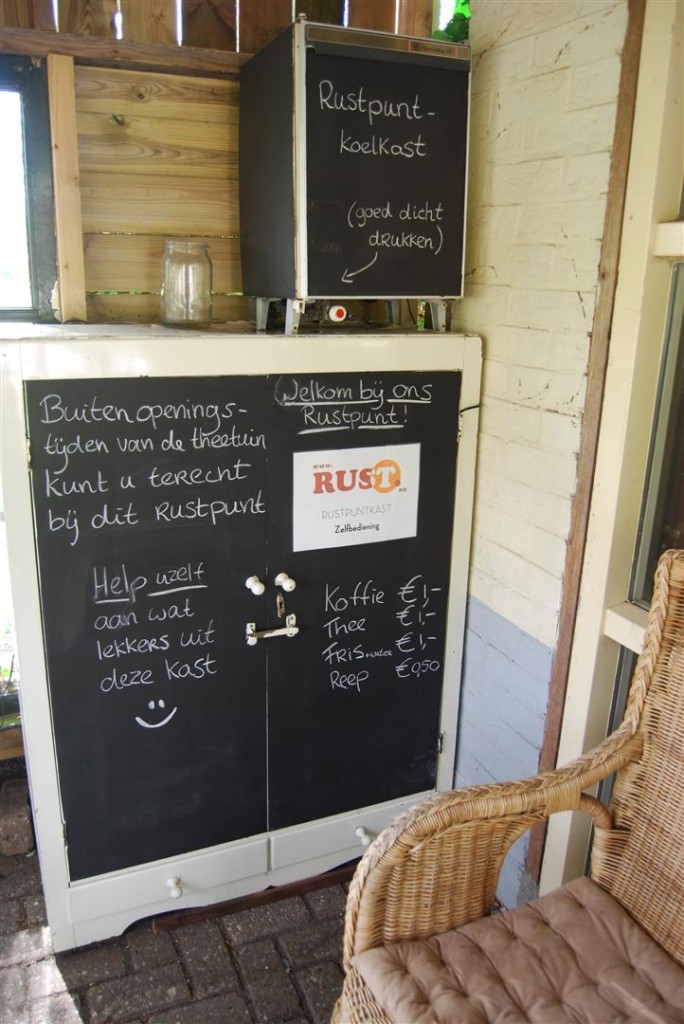 Rustpunt-
koelkast
(goed dicht
drukken)
Buiten openings-
tijden van de theetuin
kunt u terecht
bij dit Rustpunt
Help uzelf
aan wat
lekkers uit
deze kast
Welkom bij ons
Rustpunt!
www.
RUST.
RUSTPUNTKAST
Zelfbediening
Koffie €1,-
Thee €1,-
FRIS €1,-
Reep €0,50